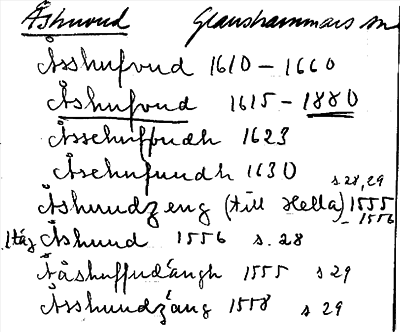 Åshuvud Glanshammars sn
Åsshufvud 1610 – 1660
Åshufvud 1615 – 1880
Åssehuffwdh 1623
Åsehufundh 1630
s 28, 29
Åshundzeng (till Hella) 1555
– 1556
1 täg Åshund 1556 s. 28
Åshuffud'ängh 1555 s 29
Åsshundz'äng 1558 s 29